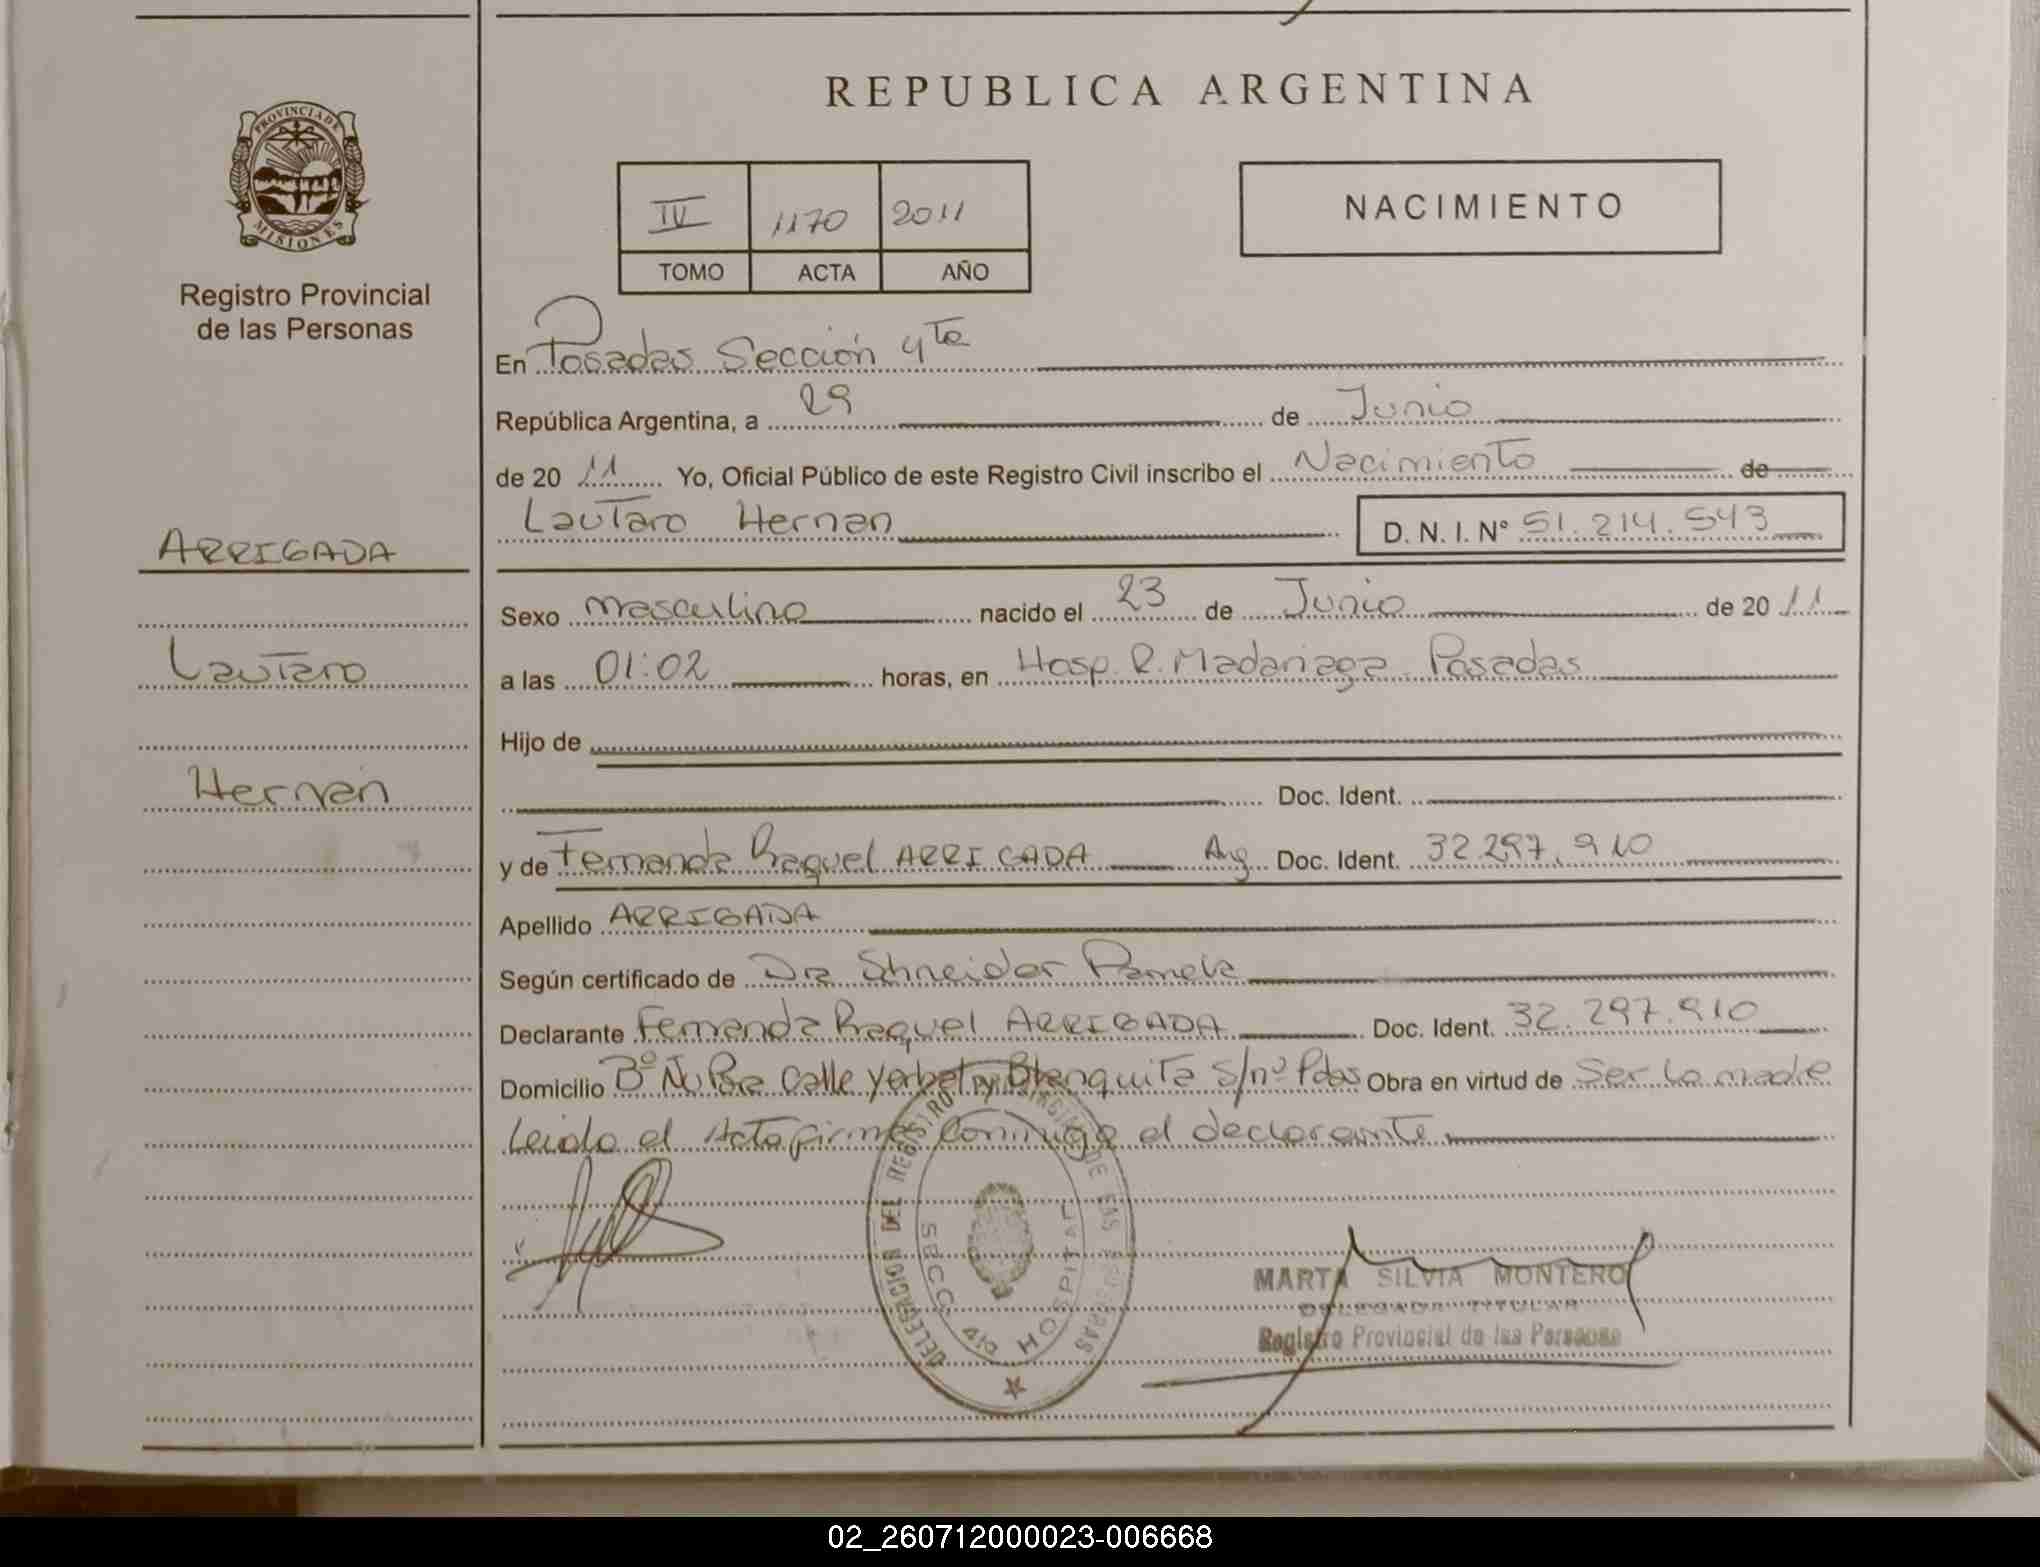 REPUBLICA ARGENTINA
PROVINCIA DE MISIONES
Registro Provincial
de las Personas
IV 1170 2011
TOMO ACTA AÑO
NACIMIENTO
En Posadas Sección 4ta
República Argentina, a 29 de Junio
de 2011 Yo, Oficial Público de este Registro Civil inscribo el Nacimiento de
Lautaro Hernan D. N. I. Nº 51.214.543
ARRIGADA
Lautaro
Hernan
Sexo masculino nacido el 23 de Junio de 2011
a las 01:02 horas, en Hosp. R. Madariaga Posadas
Hijo de
Doc. Ident.
y de Fernanda Raquel ARRIGADA Arg Doc. Ident. 32.297.910
Apellido ARRIGADA
Según certificado de Dra Shneider Pamela
Declarante Fernanda Raquel ARRIGADA Doc. Ident. 32.297.910
Domicilio Bº Ñu Pora Calle Yerbal y Blanquita S/nº Pdas Obra en virtud de Ser la madre
Leido el Acta firma conmigo el declarante
DELEGACION DEL REGISTRO PROVINCIAL DE LAS PERSONAS
SECC. 4ta HOSPITAL
MARTA SILVIA MONTERO
DELEGADA TITULAR
Registro Provincial de las Personas
02_260712000023-006668